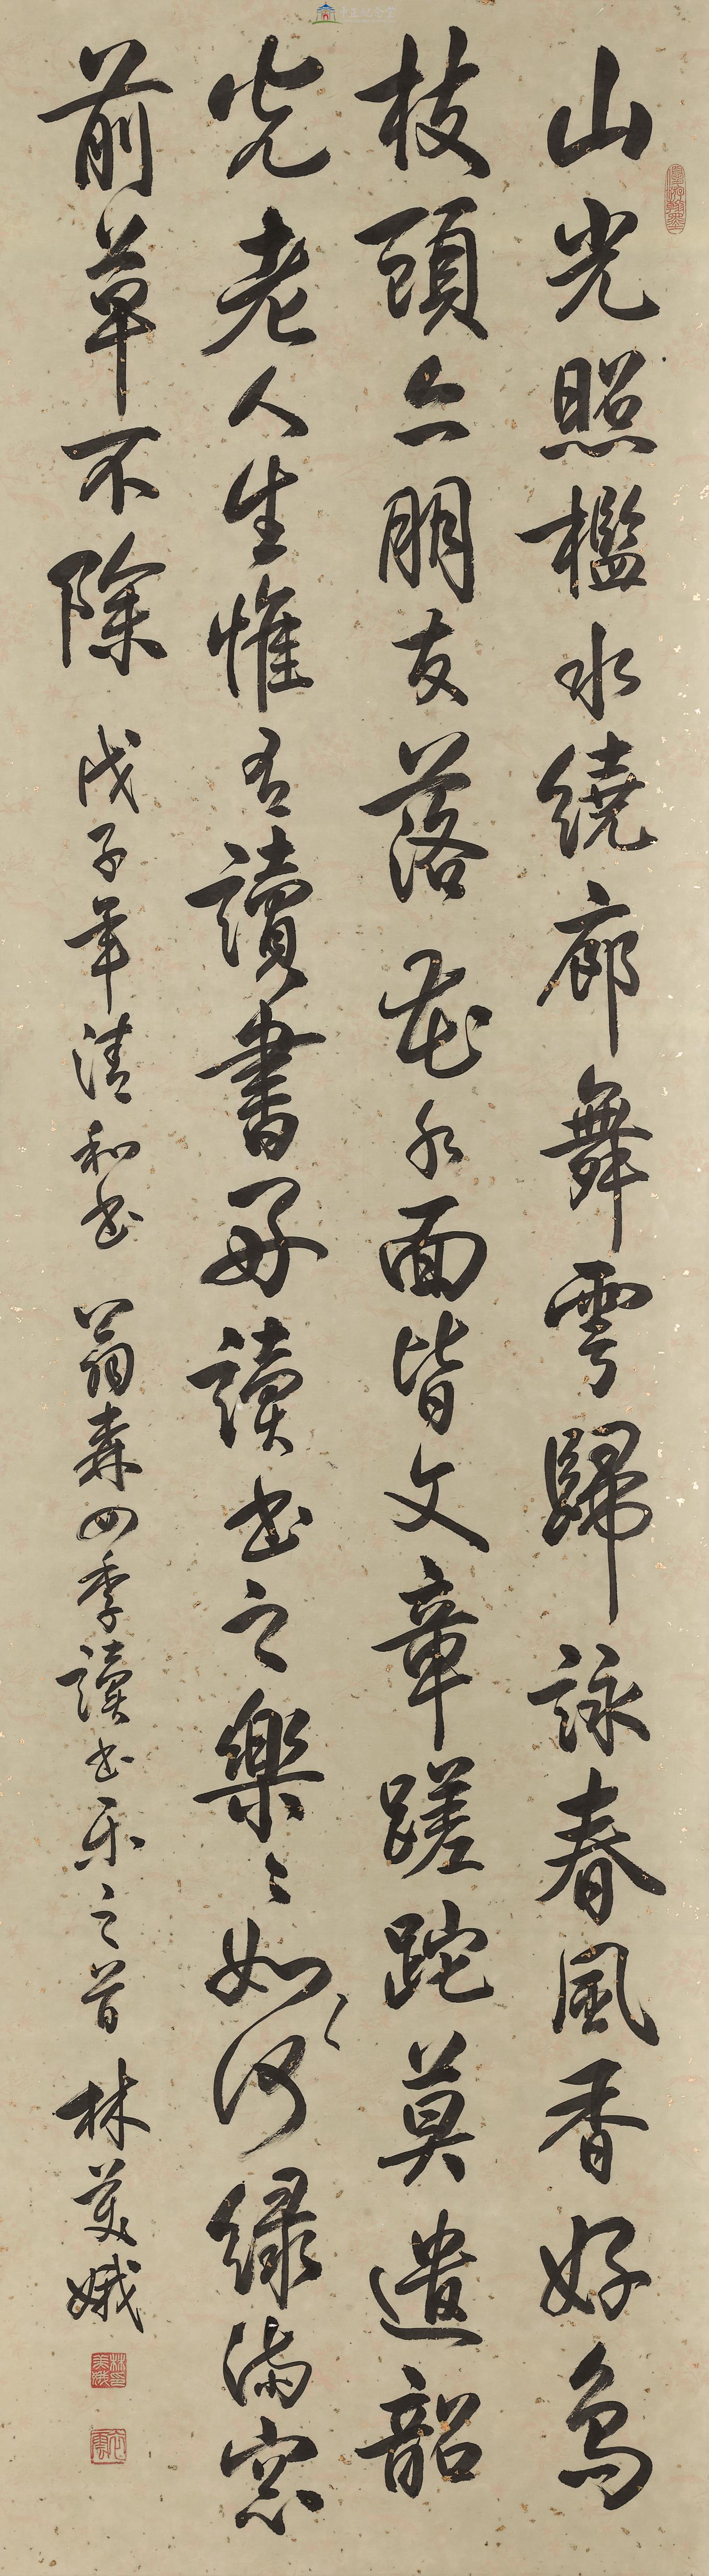 中正紀念堂
山光照檻水繞廊舞雩歸詠春風香好鳥
枝頭亦朋友落花水面皆文章蹉跎莫遣韶
光老人生惟有讀書好讀書之樂〻如何綠滿窓
前草不除 戊子年清和書 翁森四季讀書樂之首 林美娥